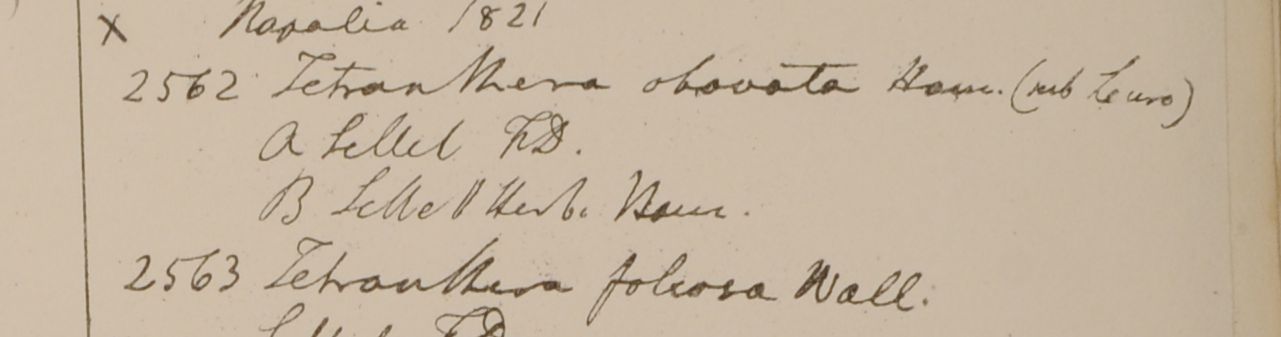 x Napalia 1821
2562 Tetranthera obovata Ham. (sub Lauro)
A Sillet F.D.
B Sillet Herb. Ham.
2563 Tetranthera foliosa Wall.
Sillet F.D.